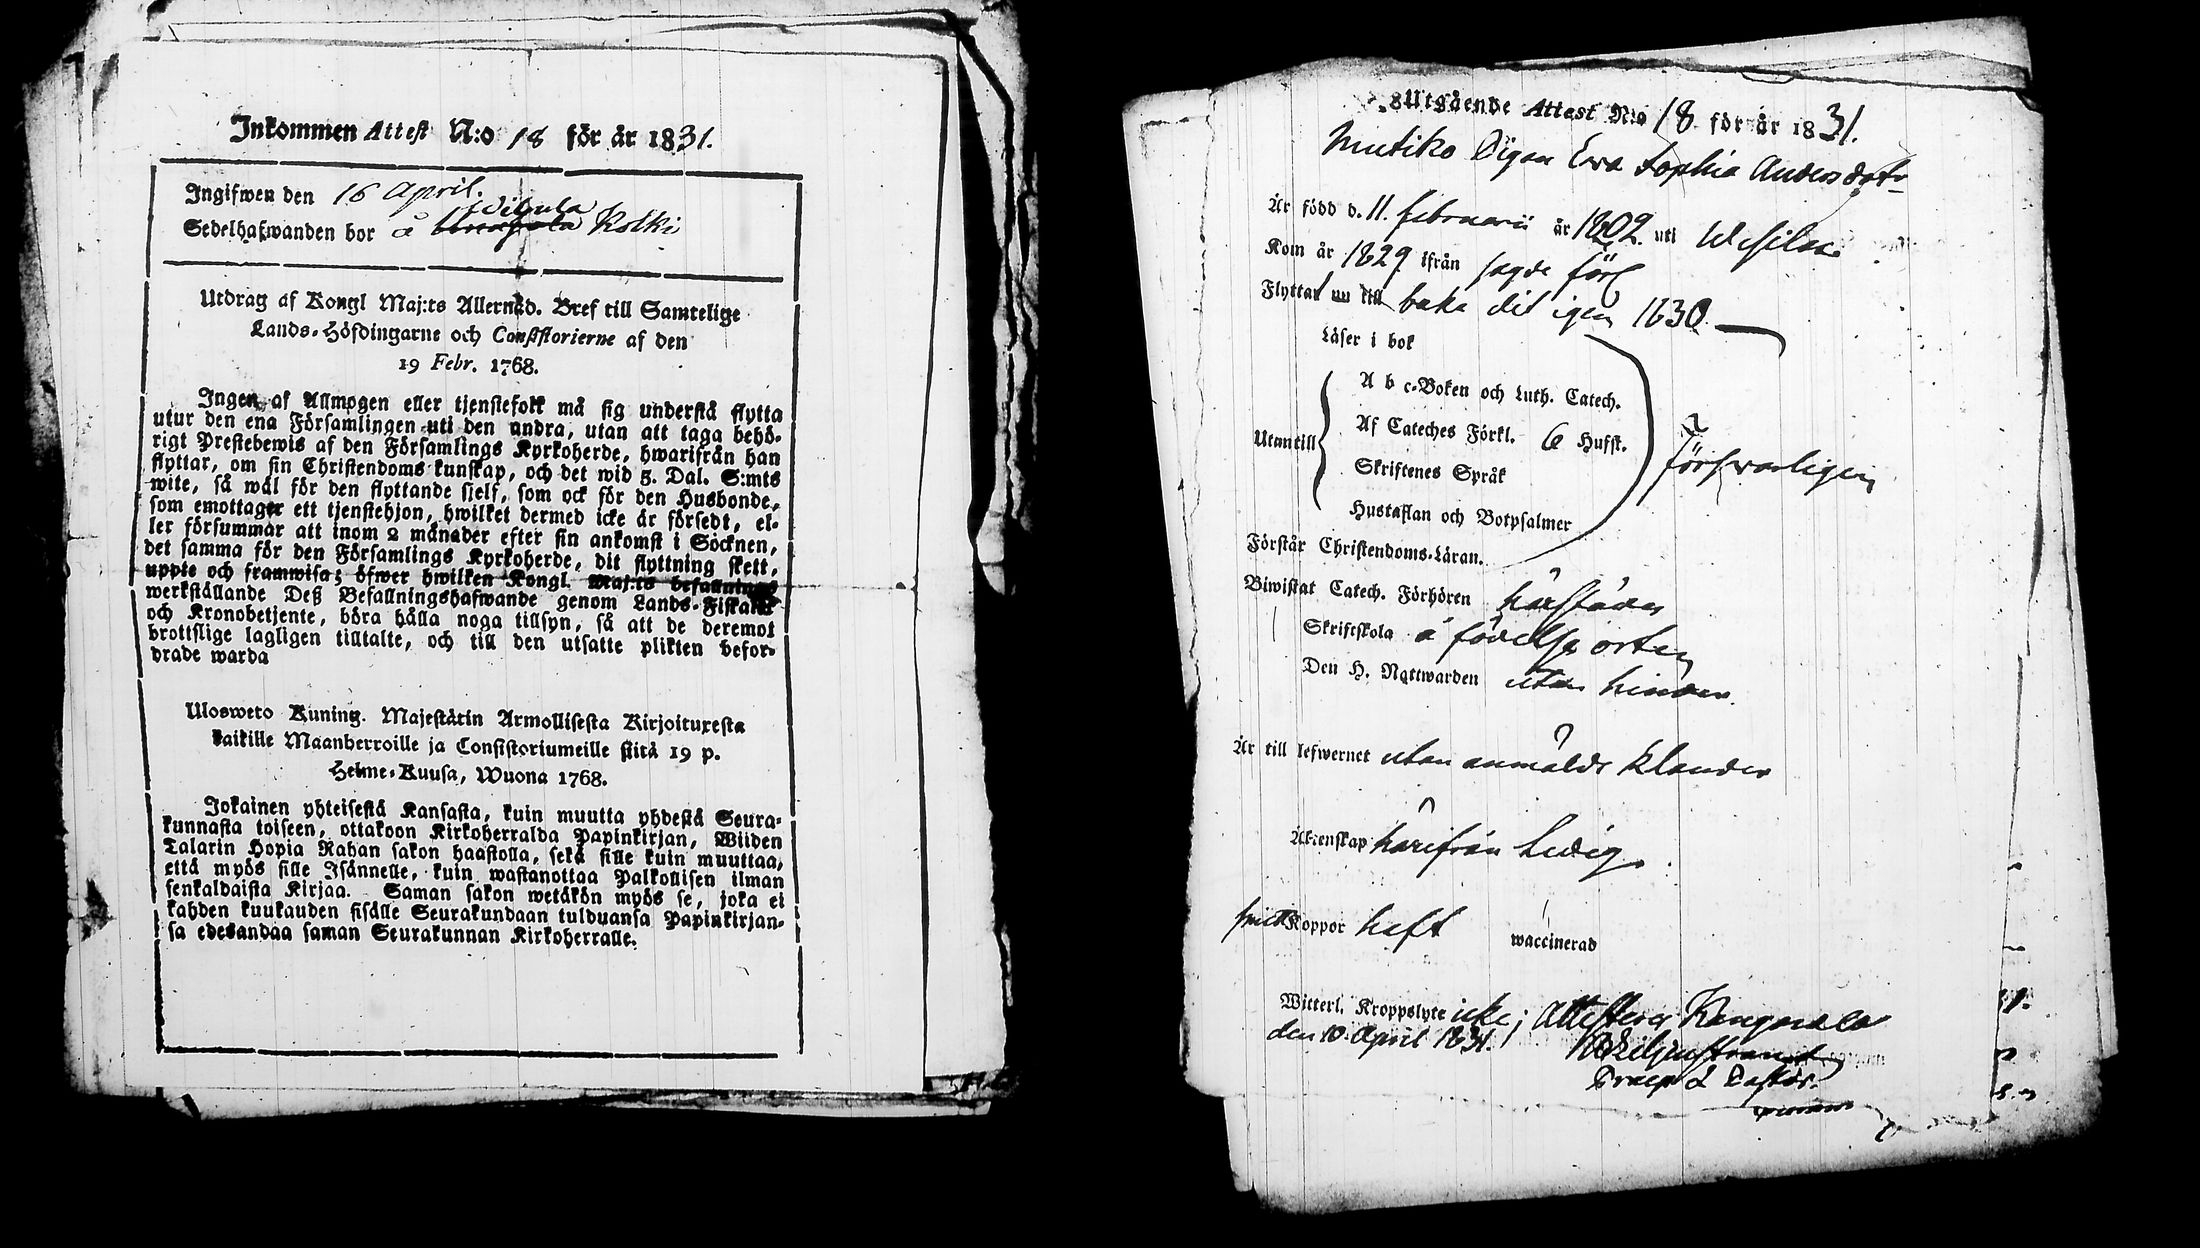 Inkommen Attest N:o 18 för år 1831.
Ingifwen den 16 April.
Wibula
Sedelhafwanden bor å Kolki
Utdrag af Kongl Maj:ts Allernåd. Bref till Samtelige
Lands-Höfdingarne och Consistorierne af den
19 Febr. 1768.
Ingen af Allmogen eller tjenstefolk må sig understå flytta
utur den ena Församlingen uti den andra, utan att taga behö-
rigt Prestebewis af den Församlings Kyrkoherde, hwarifrån han
flyttar, om sin Christendoms kunskap, och det wid 5. Dal. S:mts
wite, så wäl för den flyttande sjelf, som ock för den Husbonde,
som emottager ett tjenstehjon, hwilket dermed icke är försedt, el-
ler försummar att inom 2 månader efter sin ankomst i Socknen,
det samma för den Församlings Kyrkoherde, dit flyttning skett,
uppte och framwisa; öfwer hwilken Kongl. Maj:ts befallnings
werkställande Deß Befallningshafwande genom Lands-Fiskaler
och Kronobetjente, böra hålla noga tillsyn, så att de deremot
brottslige lagligen tilltalte, och till den utsatte plikten befor-
drade warda
Ulosweto Kuning. Majestätin Armollisesta Kirjoituxesta
kaikille Maanherroille ja Consistoriumeille siitä 19 p.
Helme-Kuusa, Wuona 1768.
Jokainen yhteisestä Kansasta, kuin muutta yhdestä Seura-
kunnasta toiseen, ottakoon Kirkoherralda Papinkirjan, Wiiden
Talarin Hopia Rahan sakon haastolla, sekä sille kuin muuttaa,
että myös sille Isännelle, kuin wastanottaa Palkollisen ilman
senkaldaista Kirjaa. Saman sakon wetäkön myös se, joka ei
kahden kuukauden sisälle Seurakundaan tulduansa Papinkirjan-
sa edesandaa saman Seurakunnan Kirkoherralle.
Utgående Attest N:o 18 för år 1831.
Mutiko Pigan Eva Sophia Andersdotr
Är född d. 11 februarii år 1802 uti Wesilax
Kom år 1829 ifrån sagde förs
Flyttar nu till baka dit igen 1830.
Läser i bok
A b c-Boken och Luth. Catech.
Af Cateches Förkl. 6 Hufst.
Utantill
försvarligen
Skriftenes Språk
Hustaflan och Botpsalmer
Förstår Christendoms-Läran.
Biwistat Catech. Förhören härstädes
Skriftskola å födelse orten
Den H. Nattwarden utan hinder
Är till lefwernet utan anmäldt klander
Äktenskap härifrån ledig
Koppor haft waccinerad
Witterl. Kroppslyte icke; Attestera Kangasala
den 10 April 1831.